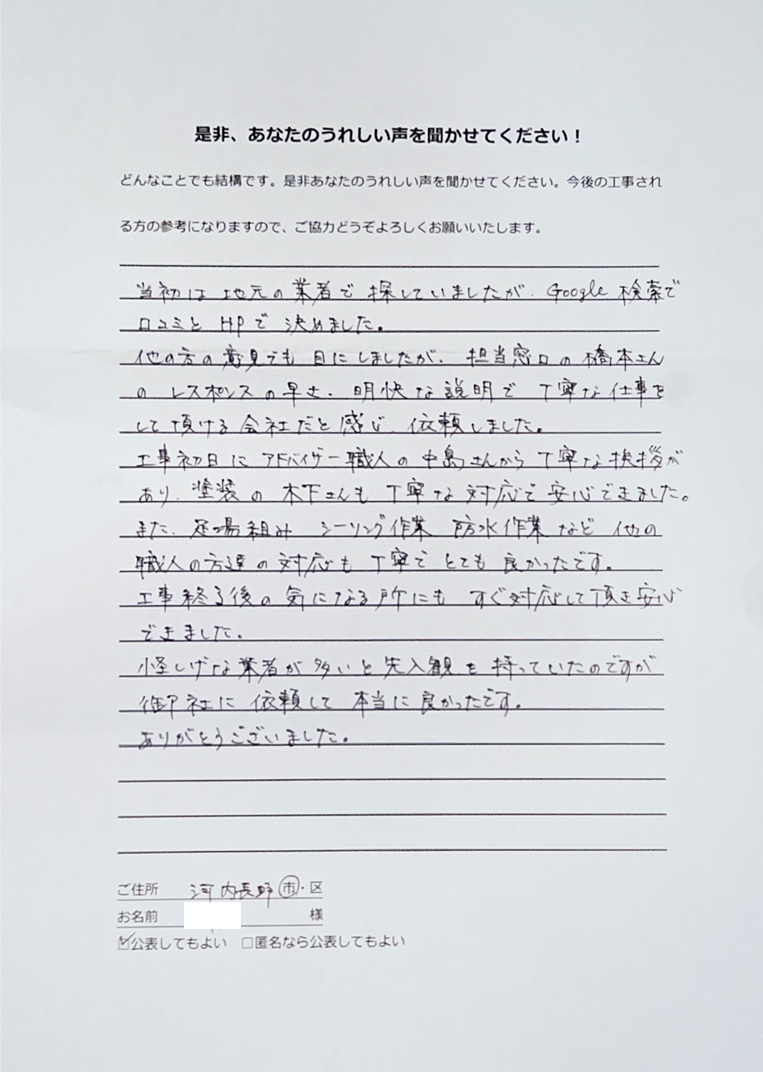 是非、あなたのうれしい声を聞かせてください！
どんなことでも結構です。是非あなたのうれしい声を聞かせてください。今後の工事され
る方の参考になりますので、ご協力どうぞよろしくお願いいたします。
当初は地元の業者で探していましたが、Google検索で
口コミとHPで決めました。
他の方の意見でも目にしましたが、担当窓口の橋本さん
のレスポンスの早さ、明快な説明で丁寧な仕事を
して頂ける会社だと感じ、依頼しました。
工事初日にアドバイザー職人の中島さんから丁寧な挨拶が
あり、塗装の木下さんも丁寧な対応で安心できました。
また、足場組み シーリング作業 防水作業など他の
職人の方達の対応も丁寧でとても良かったです。
工事終了後の気になる所にもすぐ対応して頂き安心
できました。
怪しげな業者が多いと先入観を持っていたのですが
御社に依頼して本当に良かったです。
ありがとうございました。
ご住所 河内長野 市・区
お名前 様
☑公表してもよい □匿名なら公表してもよい